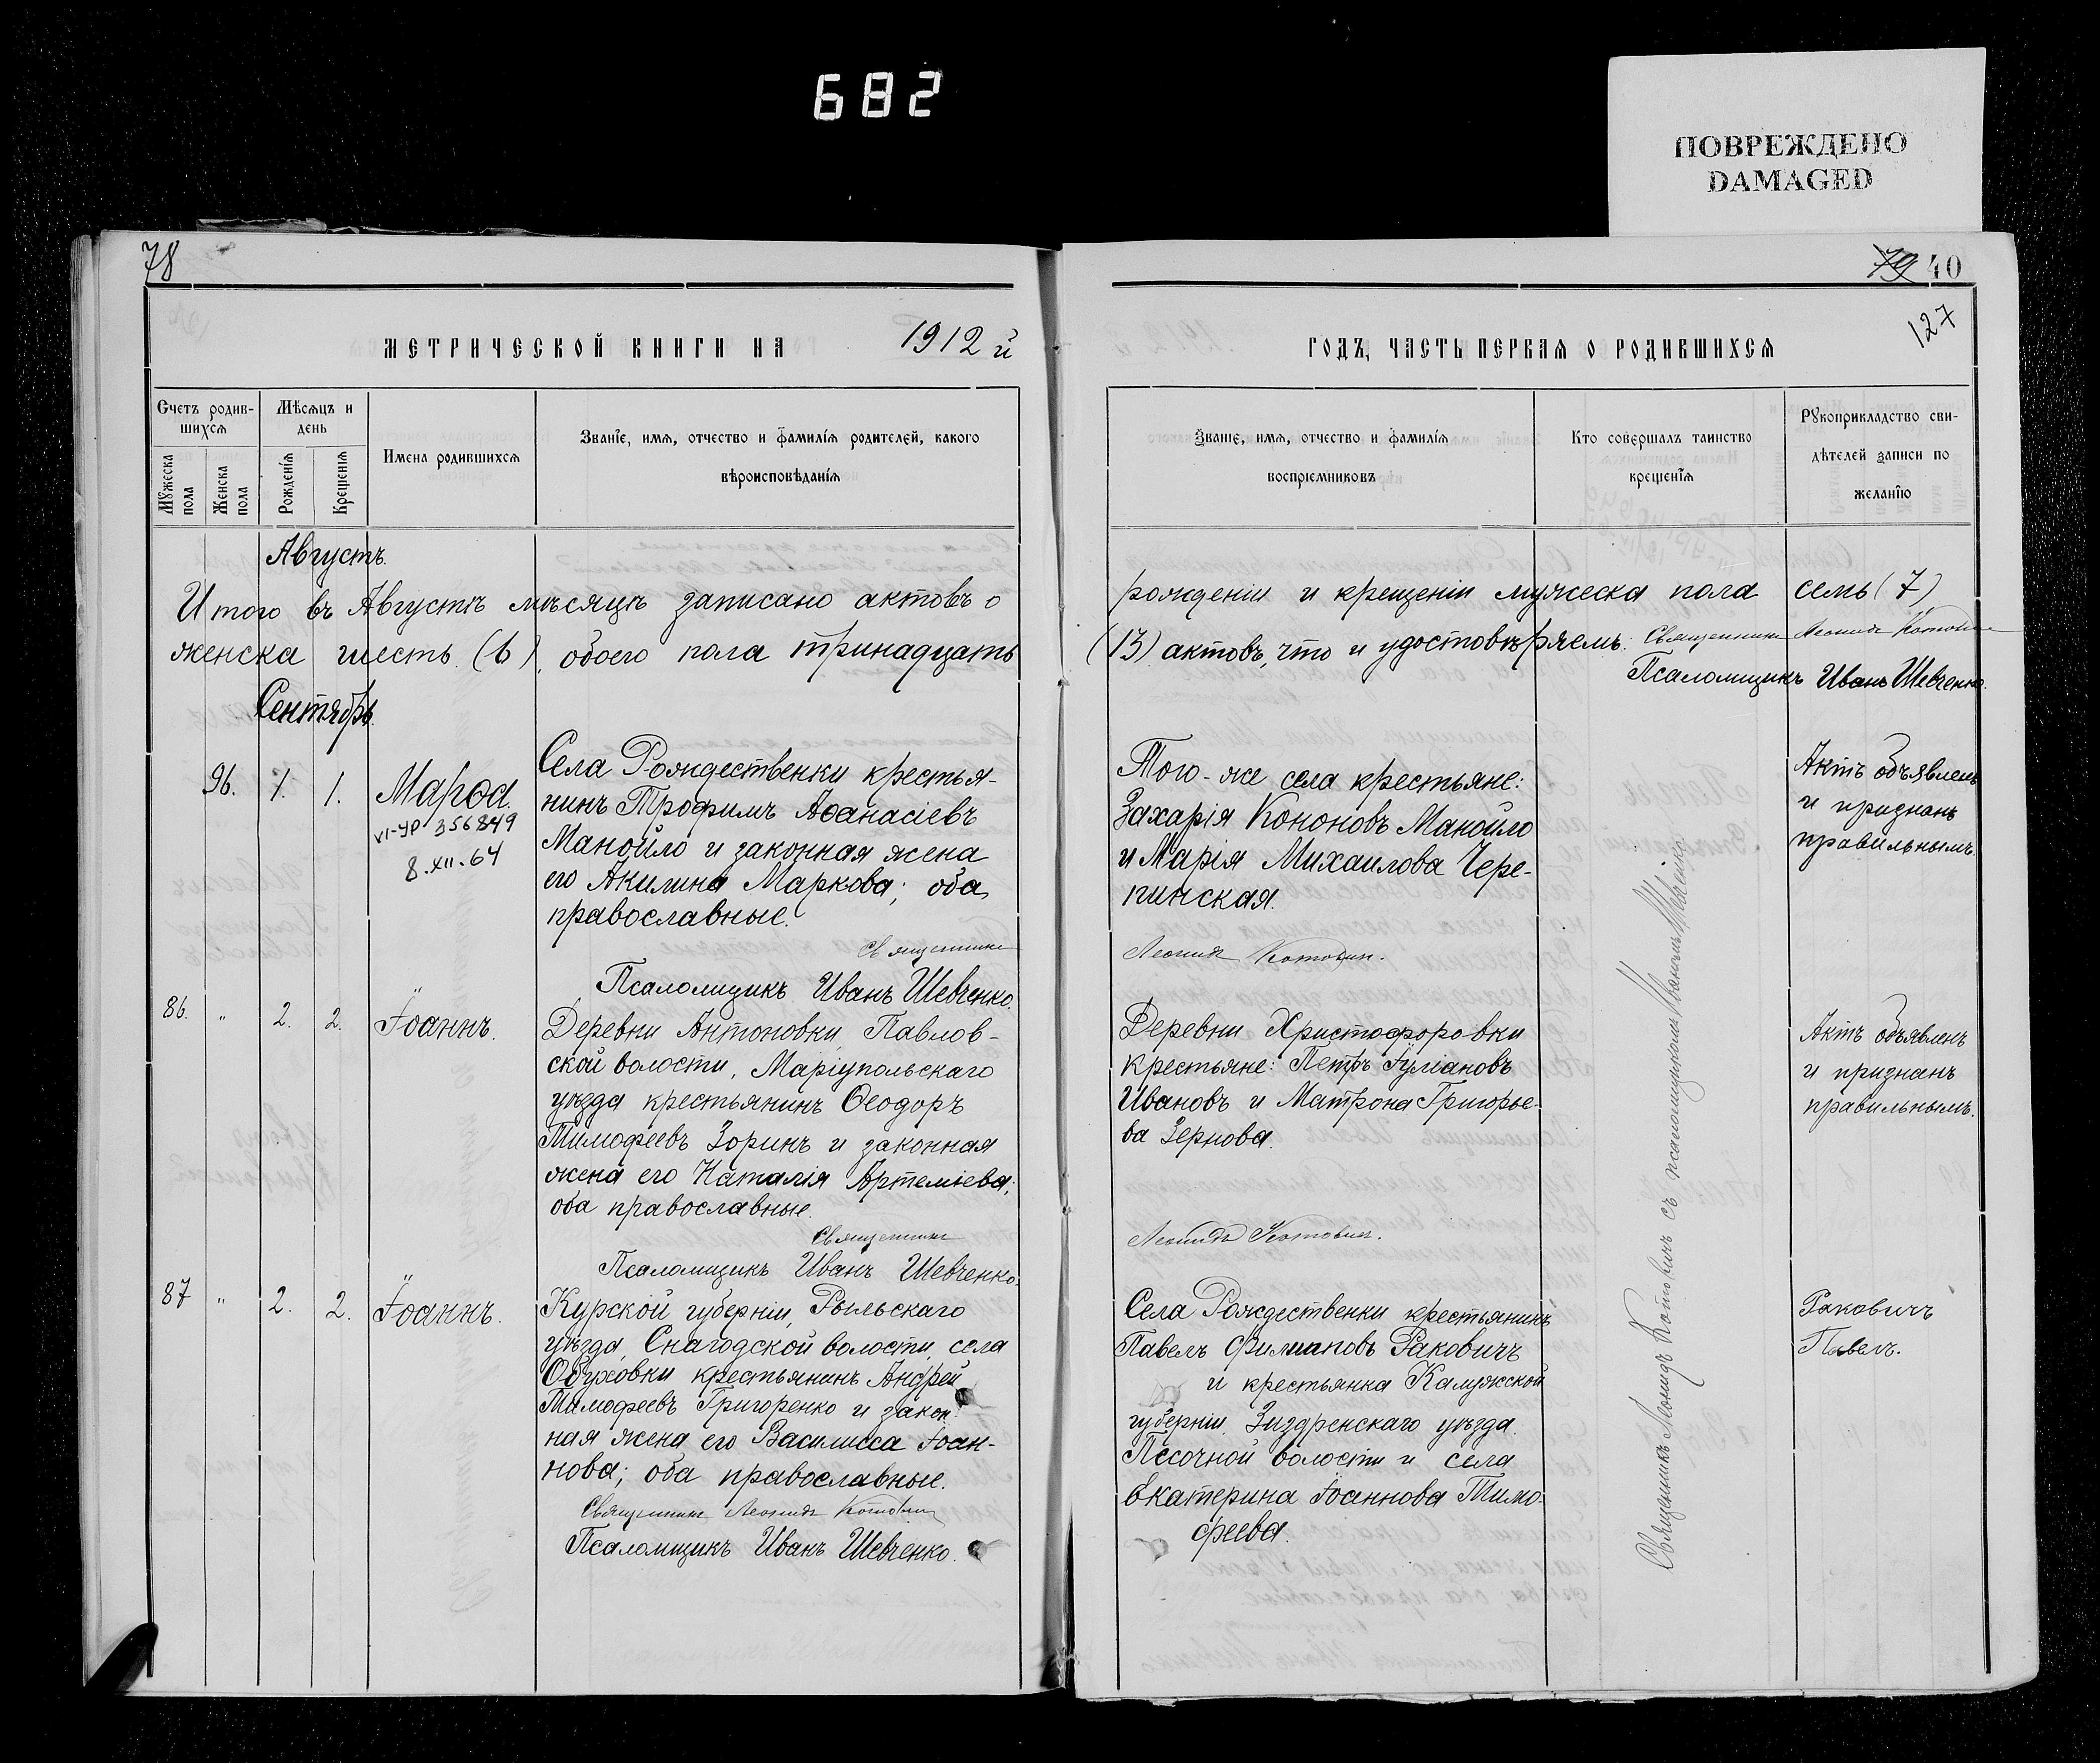 682
ПОВРЕЖДЕНО
DAMAGED
78
МЕТРИЧЕСКОЙ КНИГИ НА 1912 й
Счетъ родив-
шихся
Мѣсяцъ и
день
Мужеска
пола
Женска
пола
Рожденія
Крещенія
Имена родившихся
Званіе, имя, отчество и фамилія родителей, какого
вѣроисповѣданія
Августъ.
Итого въ Августѣ мѣсяцѣ записано актовъ о
женска шесть (6), обоего пола тринадцать
Сентябрь.
96. 1. 1. Марѳа.
VI-УР 356849
8.XII.64
Села Рождественки крестья-
нинъ Трофимъ Аѳанасіевъ
Манойло и законная жена
его Акилина Маркова; оба
православные.
Священникъ
Псаломщикъ Иванъ Шевченко.
86. " 2. 2. Іоаннъ.
Деревни Антоновки, Павлов-
ской волости, Маріупольскаго
уѣзда крестьянинъ Ѳеодоръ
Тимофеевъ Зоринъ и законная
жена его Наталія Артеміева;
оба православные.
Священникъ
Псаломщикъ Иванъ Шевченко.
87 " 2. 2. Іоаннъ.
Курской губерніи, Рыльскаго
уѣзда, Снагодской волости, села
Обуховки крестьянинъ Андрей
Тимофеевъ Григоренко и закон-
ная жена его Василисса Іоан-
нова; оба православные.
Священникъ Леонидъ Котович
Псаломщикъ Иванъ Шевченко.
79 40
127
ГОДЪ, ЧАСТЬ ПЕРВАЯ О РОДИВШИХСЯ
Званіе, имя, отчество и фамилія
воспріемниковъ
Кто совершалъ таинство
крещенія
Рукоприкладство сви-
дѣтелей записи по
желанію
рожденіи и крещеніи мужеска пола семь (7)
(13) актовъ, что и удостовѣряемъ: Священникъ Леонидъ Котович
Псаломщикъ Иванъ Шевченко.
Того-же села крестьяне:
Захарія Кононовъ Манойло
и Марія Михаилова Чере-
пинская.
Леонидъ Котович.
Актъ объявленъ
и признанъ
правильнымъ.
Деревни Христофоровки
крестьяне: Петръ Іуліановъ
Ивановъ и Матрона Григорье-
ва Зернова.
Леонидъ Котович.
Актъ объявленъ
и признанъ
правильнымъ.
Села Рождественки крестьянинъ
Павелъ Филиповъ Раковичъ
и крестьянка Калужской
губерніи. Жиздренскаго уѣзда.
Песочной волости и села
Екатерина Іоаннова Тимо-
феева.
Раковичъ
Павелъ.
Священникъ Леонидъ Котовичъ съ псаломщикомъ Иваномъ Шевченко